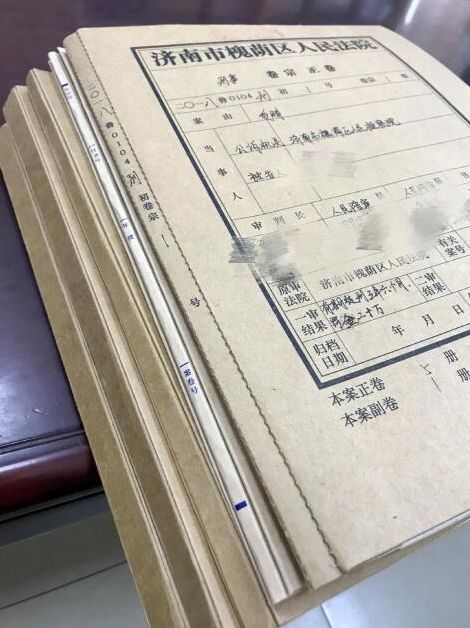 济南市槐荫区人民法院
刑事 卷宗正卷
二〇一八鲁0104刑初 号
案由 受贿
当事人
公诉机关 济南市槐荫区人民检察院
被告人
审判长 人民陪审
原审法院 济南市槐荫区人民法院
有关案号
一审结果 有期徒刑三年六个月, 罚金二十万
二审结果
归档日期 年 月 日
本案正卷 5 册
本案副卷 册
二〇一八鲁0104刑初卷宗 1 号
目录号
年度
案卷号